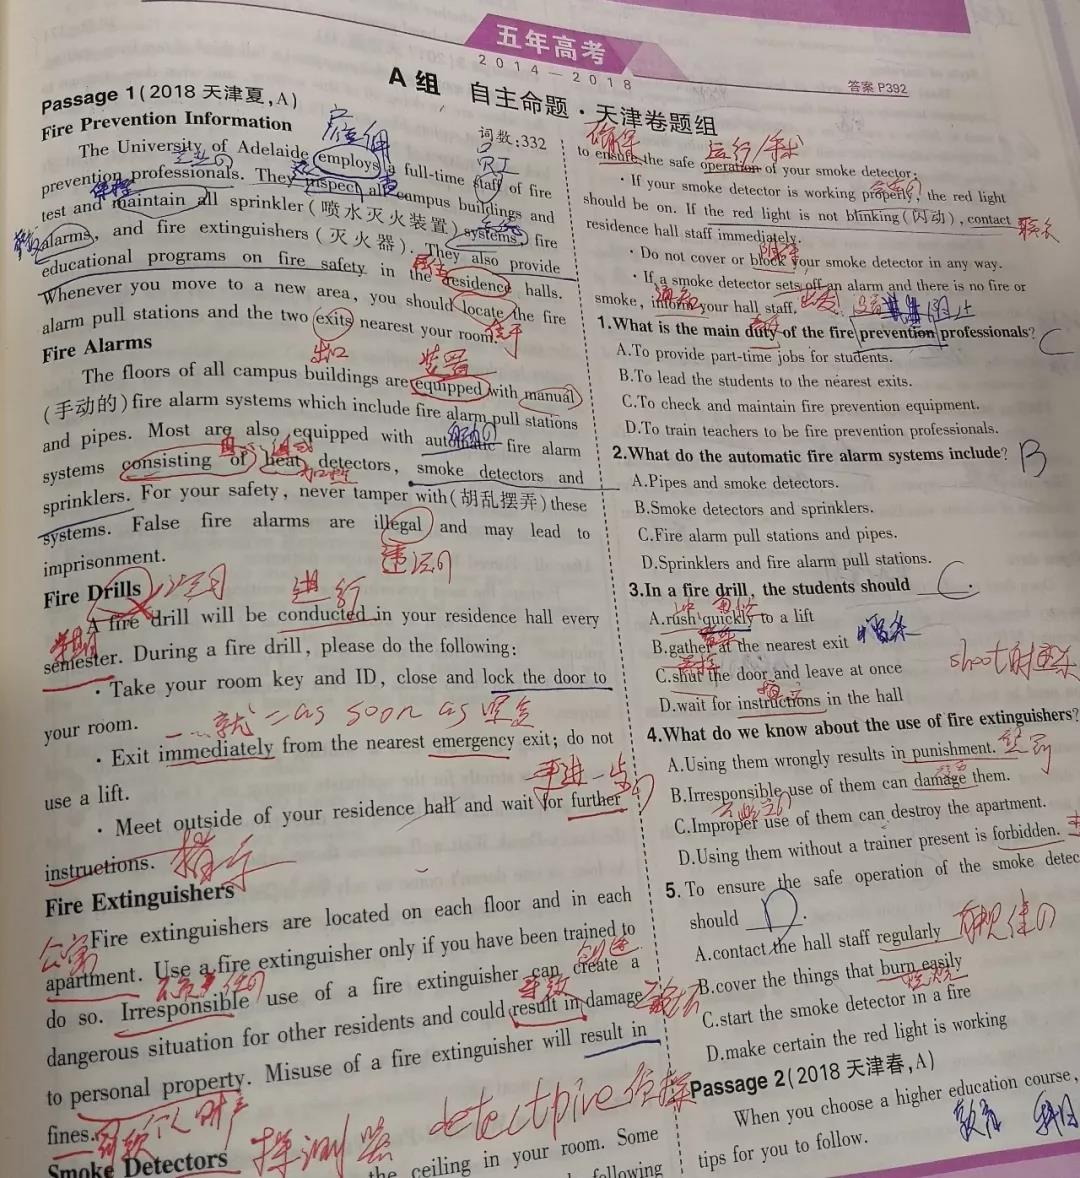 五年高考
2014—2018
答案 P392
A 组 自主命题·天津卷题组
Passage 1(2018 天津夏,A)
词数:332
Fire Prevention Information
The University of Adelaide employs a full-time staff of fire
prevention professionals. They inspect all campus buildings and
test and maintain all sprinkler(喷水灭火装置) systems, fire
alarms, and fire extinguishers(灭火器). They also provide
educational programs on fire safety in the residence halls.
Whenever you move to a new area, you should locate the fire
alarm pull stations and the two exits nearest your room.
出口
Fire Alarms
装置
The floors of all campus buildings are equipped with manual
(手动的)fire alarm systems which include fire alarm pull stations
and pipes. Most are also equipped with automatic fire alarm
systems consisting of heat detectors, smoke detectors and
sprinklers. For your safety, never tamper with(胡乱摆弄)these
systems. False fire alarms are illegal and may lead to
imprisonment.
违法的
Fire Drills
进行
A fire drill will be conducted in your residence hall every
学期
semester. During a fire drill, please do the following:
· Take your room key and ID, close and lock the door to
your room.
一...就 = as soon as
· Exit immediately from the nearest emergency exit; do not
use a lift.
更进一步的
· Meet outside of your residence hall and wait for further
instructions.
指示
Fire Extinguishers
公寓
Fire extinguishers are located on each floor and in each
apartment. Use a fire extinguisher only if you have been trained to
创造
不负责任的
导致
do so. Irresponsible use of a fire extinguisher can create a
dangerous situation for other residents and could result in damage
to personal property. Misuse of a fire extinguisher will result in
个人财产
fines.
罚款
探测器
detectpive 侦探
Smoke Detectors
the ceiling in your room. Some
following
确保
运行/手术
to ensure the safe operation of your smoke detector:
· If your smoke detector is working properly, the red light
should be on. If the red light is not blinking(闪动), contact
联系
residence hall staff immediately.
· Do not cover or block your smoke detector in any way.
· If a smoke detector sets off an alarm and there is no fire or
通知
smoke, inform your hall staff.
出发
阻止
1.What is the main duty of the fire prevention professionals?
C
A.To provide part-time jobs for students.
B.To lead the students to the nearest exits.
C.To check and maintain fire prevention equipment.
D.To train teachers to be fire prevention professionals.
2.What do the automatic fire alarm systems include?
B
A.Pipes and smoke detectors.
B.Smoke detectors and sprinklers.
C.Fire alarm pull stations and pipes.
D.Sprinklers and fire alarm pull stations.
3.In a fire drill, the students should C.
A.rush quickly to a lift
B.gather at the nearest exit
C.shut the door and leave at once
D.wait for instructions in the hall
4.What do we know about the use of fire extinguishers?
A.Using them wrongly results in punishment.
惩罚
B.Irresponsible use of them can damage them.
C.Improper use of them can destroy the apartment.
D.Using them without a trainer present is forbidden.
5.To ensure the safe operation of the smoke detec
should D.
A.contact the hall staff regularly
B.cover the things that burn easily
燃烧
C.start the smoke detector in a fire
D.make certain the red light is working
Passage 2(2018 天津春,A)
When you choose a higher education course,
教育
tips for you to follow.